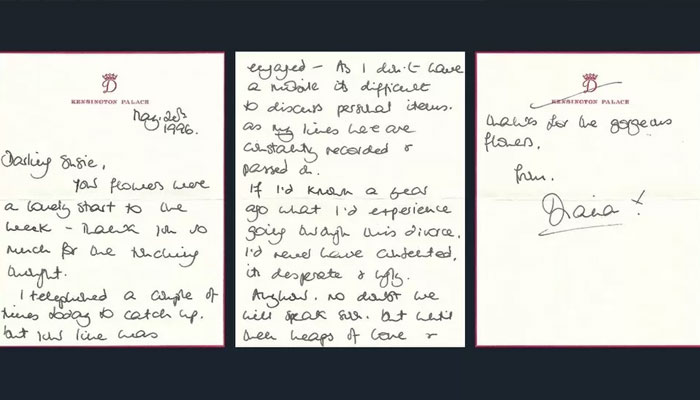 D
KENSINGTON PALACE
May. 20th
1996.
Darling Susie,
Your flowers were
a lovely start to the
week - Thank you so
much for the touching
thought.
I telephoned a couple of
times today to catch up,
but your line was
engaged - As I don't have
a mobile its difficult
to discuss personal items.
as my lines here are
constantly recorded &
passed on.
If I'd known a year
ago what I'd experience
going through this divorce.
I'd never have consented,
its desperate & ugly.
Anyhow. no doubt we
will speak soon. but until
then heaps of love &
D
KENSINGTON PALACE
thanks for the gorgeous
flowers,
from.
Diana x